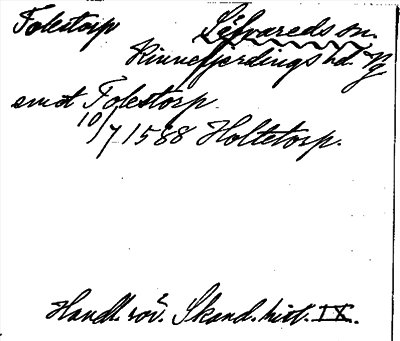 Tolestorp Lÿvareds sn.
Kinnefjerdings hd. Vg
emot Tolestorp
10/7 1588 Holtetorp.
Handl. rör. Skand. hist. IX.